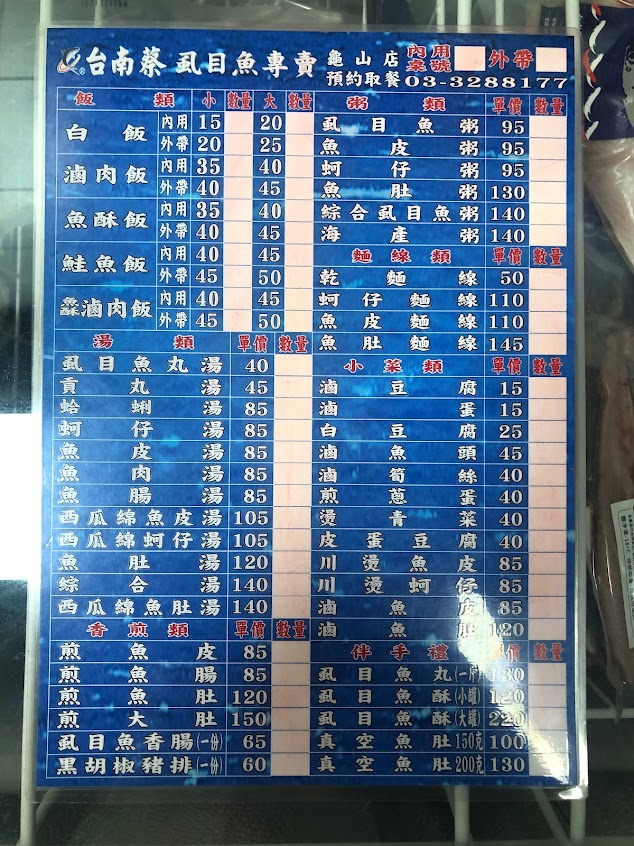 台南蔡 虱目魚專賣 龜山店 內用桌號 外帶
預約取餐 03-3288177
飯類 小 數量 大 數量
白飯 內用 15 20
外帶 20 25
滷肉飯 內用 35 40
外帶 40 45
魚酥飯 內用 35 40
外帶 40 45
鮭魚飯 內用 40 45
外帶 45 50
鱻滷肉飯 內用 40 45
外帶 45 50
湯類 單價 數量
虱目魚丸湯 40
貢丸湯 45
蛤蜊湯 85
蚵仔湯 85
魚皮湯 85
魚肉湯 85
魚腸湯 85
西瓜綿魚皮湯 105
西瓜綿蚵仔湯 105
魚肚湯 120
綜合湯 140
西瓜綿魚肚湯 140
香煎類 單價 數量
煎魚皮 85
煎魚腸 85
煎魚肚 120
煎大肚 150
虱目魚香腸(一份) 65
黑胡椒豬排(一份) 60
粥類 單價 數量
虱目魚粥 95
魚皮粥 95
蚵仔粥 95
魚肚粥 130
綜合虱目魚粥 140
海產粥 140
麵線類 單價 數量
乾麵線 50
蚵仔麵線 110
魚皮麵線 110
魚肚麵線 145
小菜類 單價 數量
滷豆腐 15
滷蛋 15
白豆腐 25
滷魚頭 45
滷筍絲 40
煎蔥蛋 40
燙青菜 40
皮蛋豆腐 40
川燙魚皮 85
川燙蚵仔 85
滷魚皮 85
滷魚肚 120
伴手禮 單價 數量
虱目魚丸(一斤) 130
虱目魚酥(小罐) 120
虱目魚酥(大罐) 220
真空魚肚 150克 100
真空魚肚 200克 130